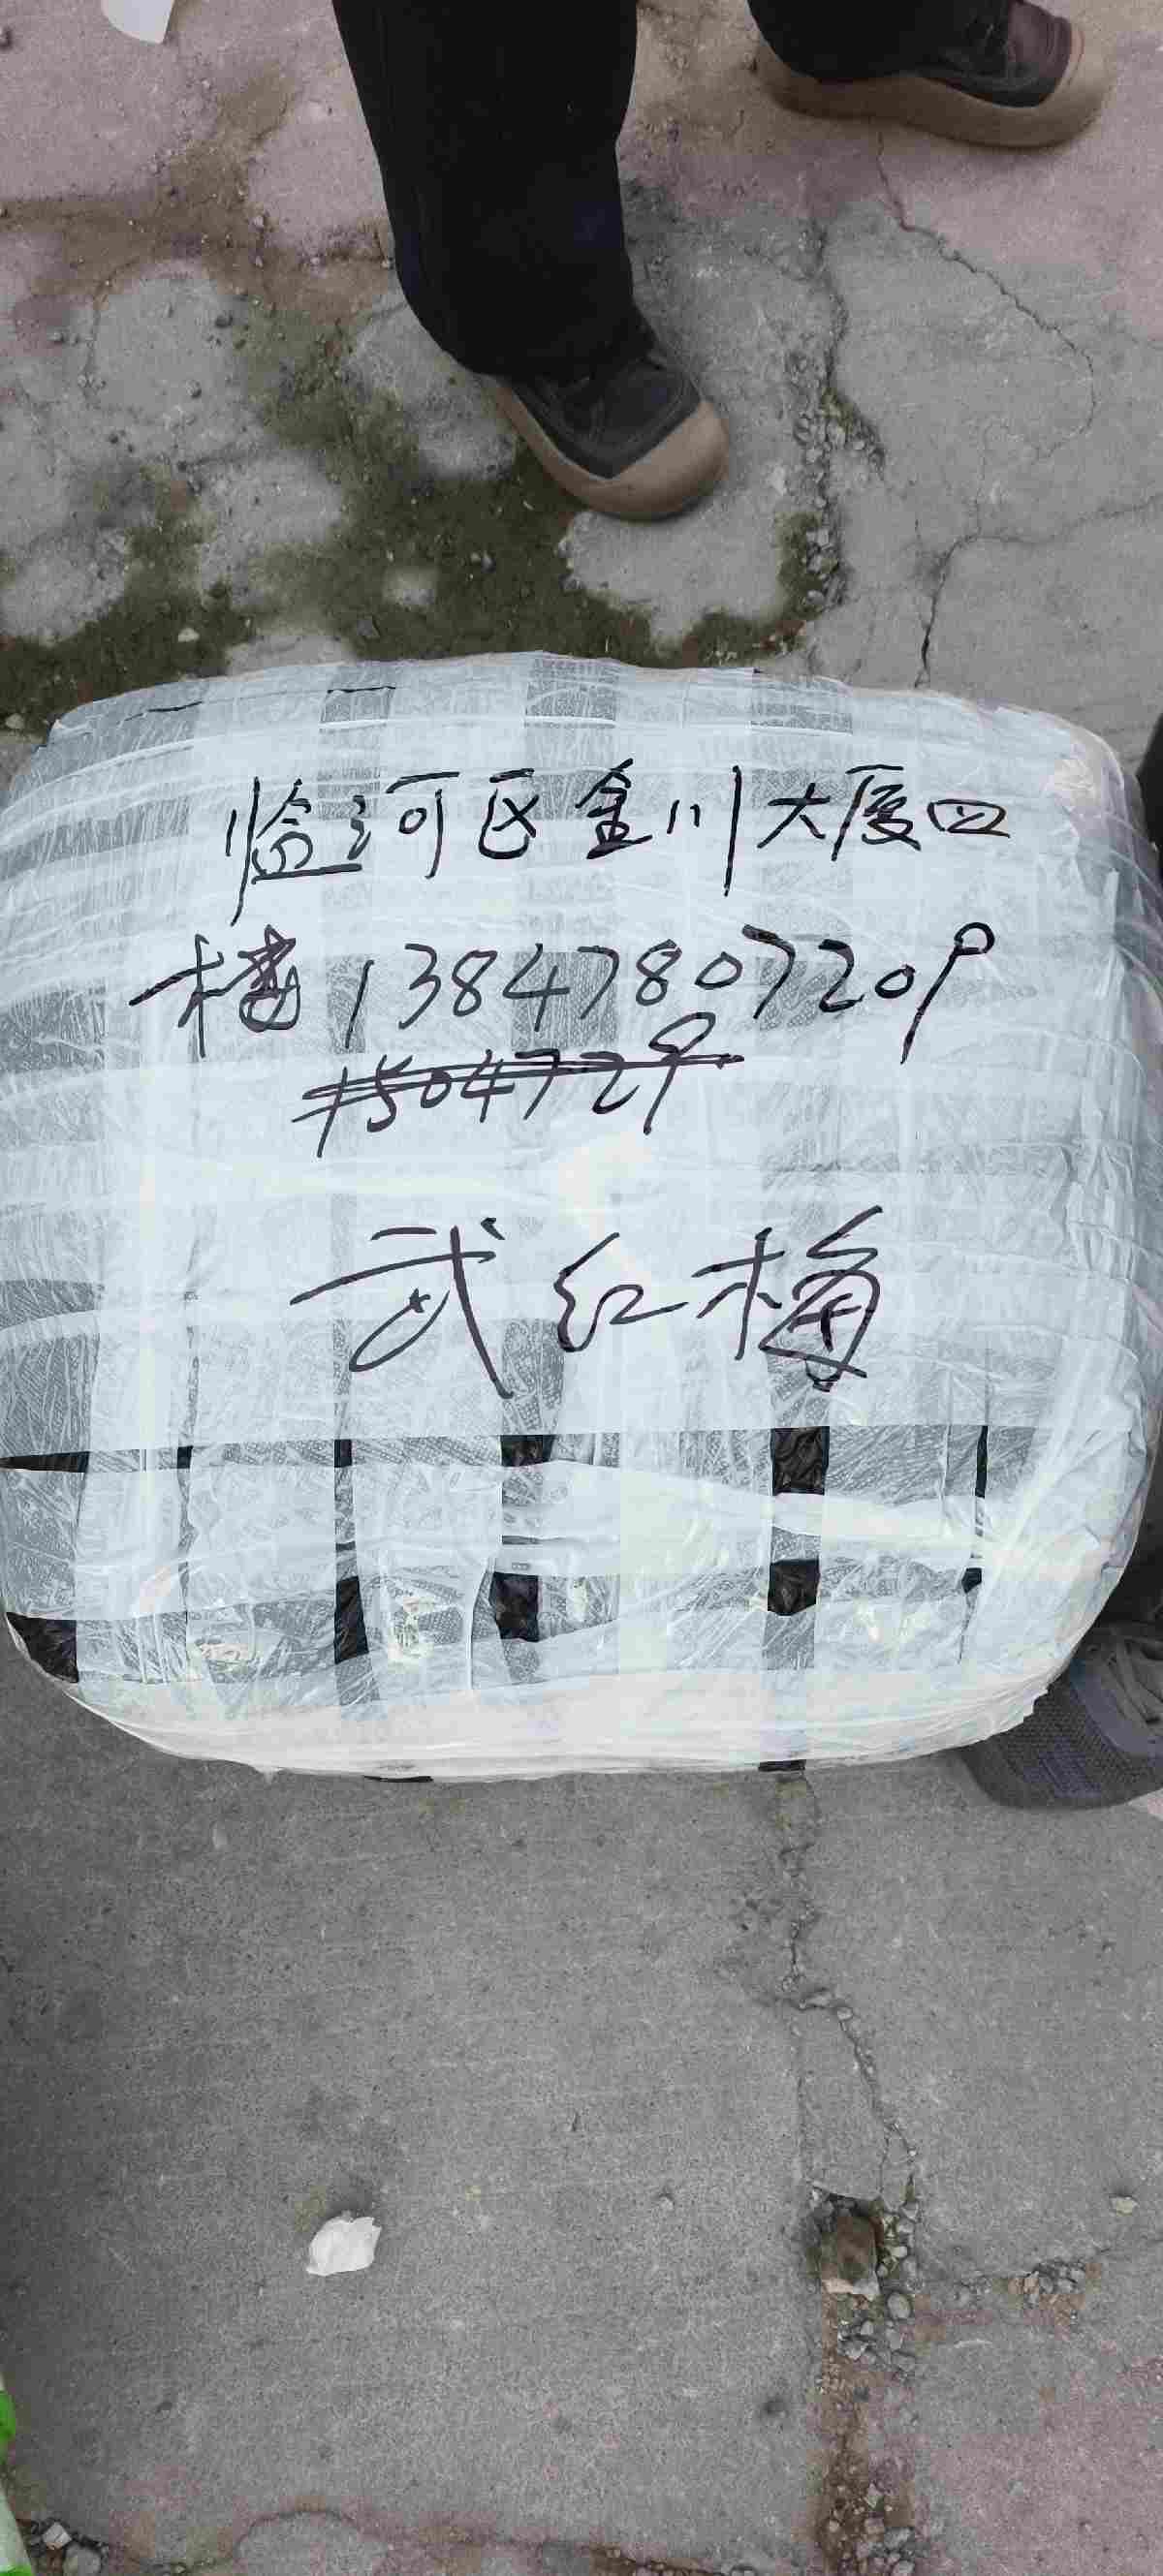 临河区金川大厦四
楼13847807209
1504729
武红梅